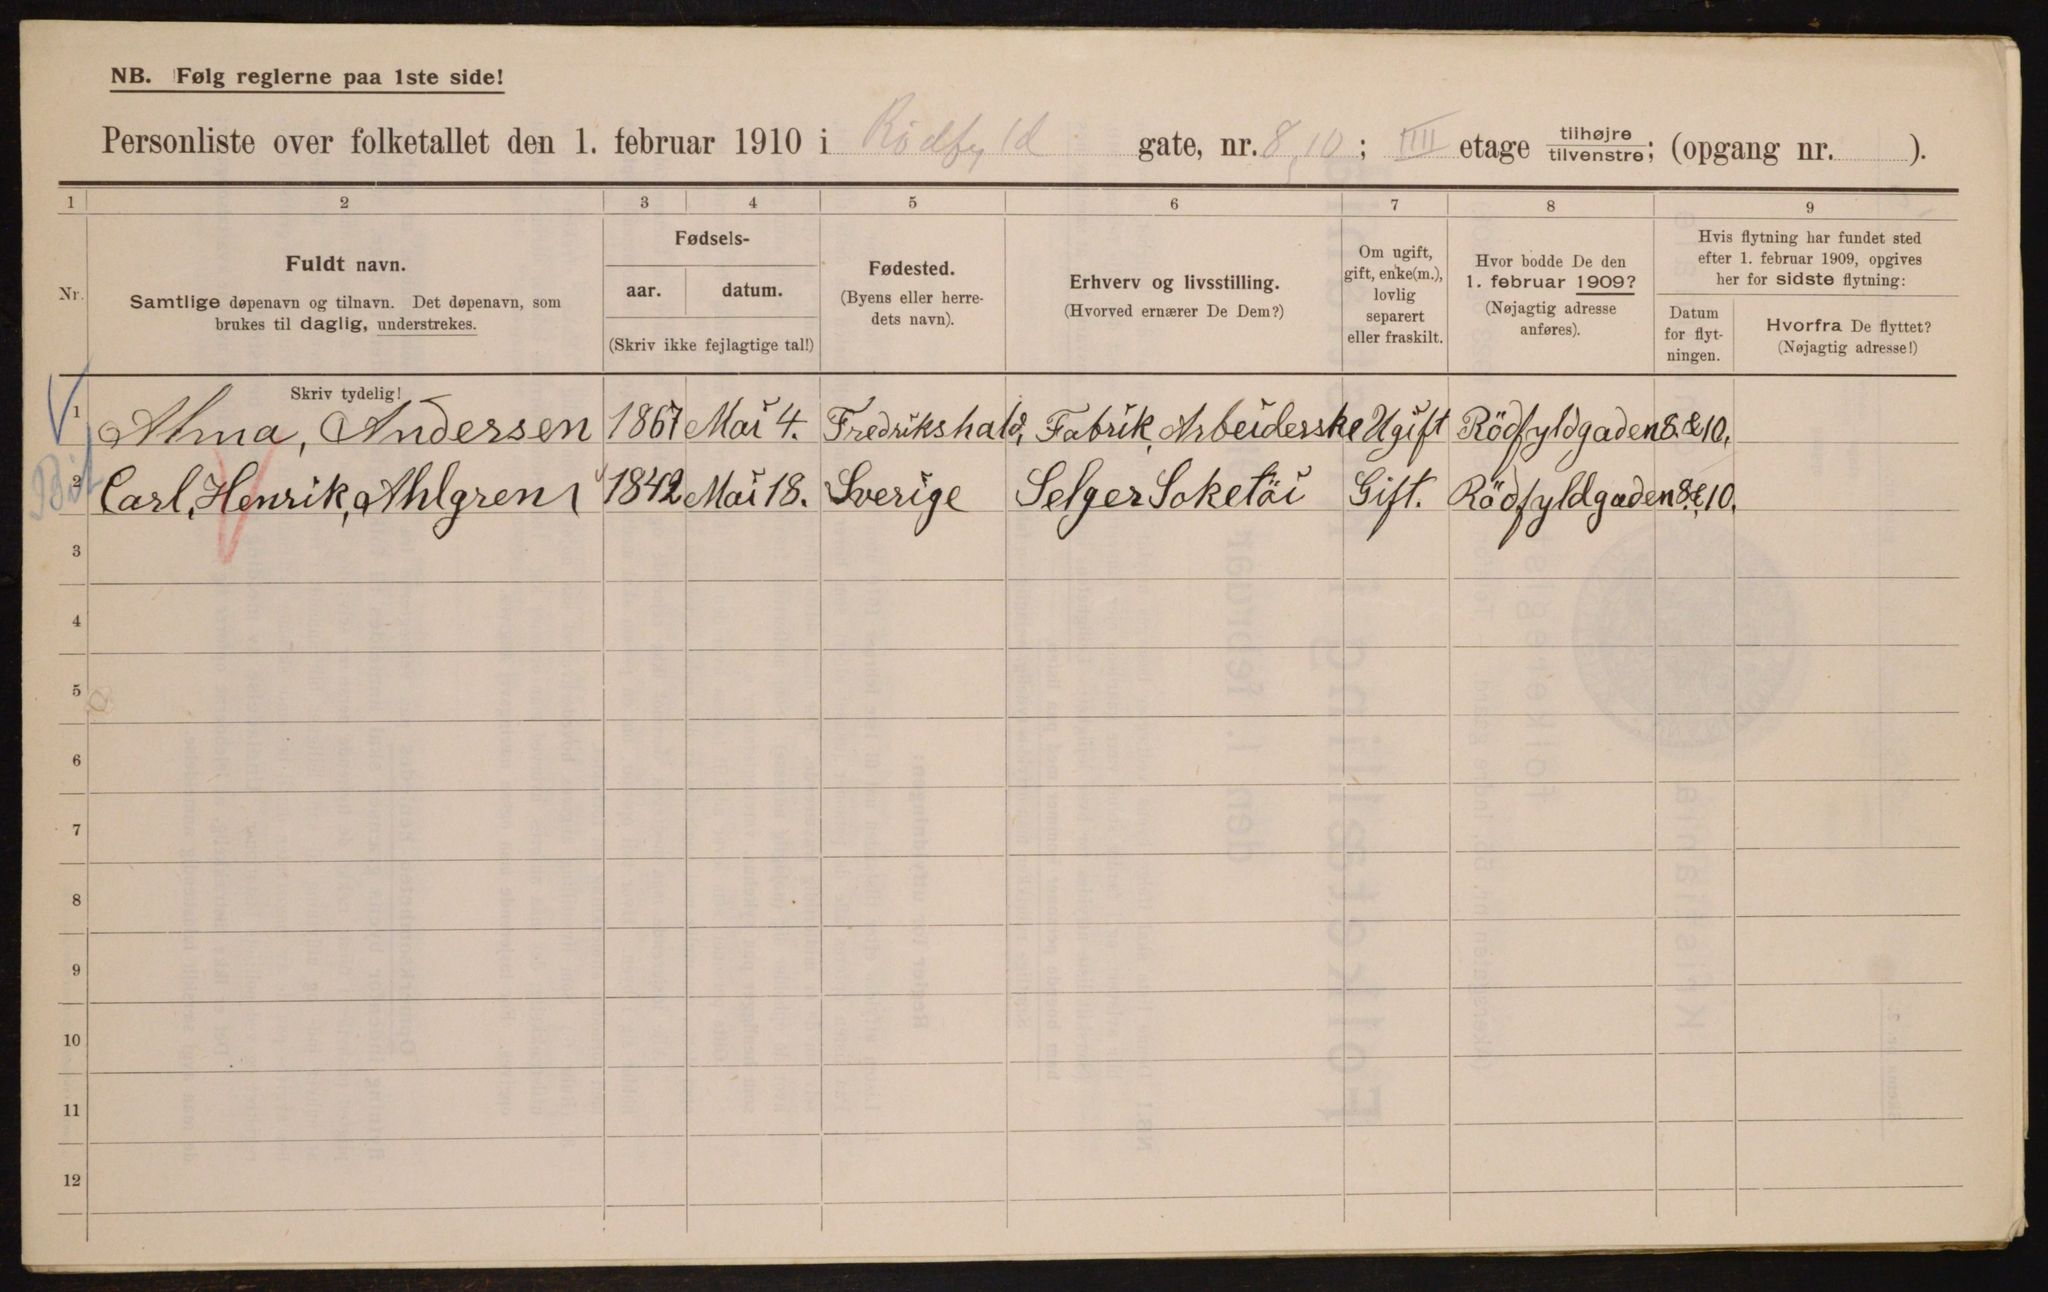 NB. Følg reglerne paa 1ste side!
Personliste over folketallet den 1. februar 1910 i Rödfyld gate, nr. 8, 10; IIII etage tilhøjre tilvenstre; (opgang nr. ).
1 2 3 4 5 6 7 8 9
Nr.
Fuldt navn.
Samtlige døpenavn og tilnavn. Det døpenavn, som
brukes til daglig, understrekes.
Skriv tydelig!
Fødsels-
aar. datum.
(Skriv ikke fejlagtige tal!)
Fødested.
(Byens eller herre-
dets navn).
Erhverv og livsstilling.
(Hvorved ernærer De Dem?)
Om ugift,
gift, enke(m.),
lovlig
separert
eller fraskilt.
Hvor bodde De den
1. februar 1909?
(Nøjagtig adresse
anføres).
Hvis flytning har fundet sted
efter 1. februar 1909, opgives
her for sidste flytning:
Datum
for flyt-
ningen.
Hvorfra De flyttet?
(Nøjagtig adresse!)
1 Alma, Andersen 1867 Mai 4. Fredrikshald, Fabrik, Arbeiderske Ugift Rödfyldgaden 8.&10.
2 Carl, Henrik, Ahlgren 1842 Mai 18. Sverige Selger Soketöi Gift. Rödfyldgaden 8.&10.
3
4
5
6
7
8
9
10
11
12